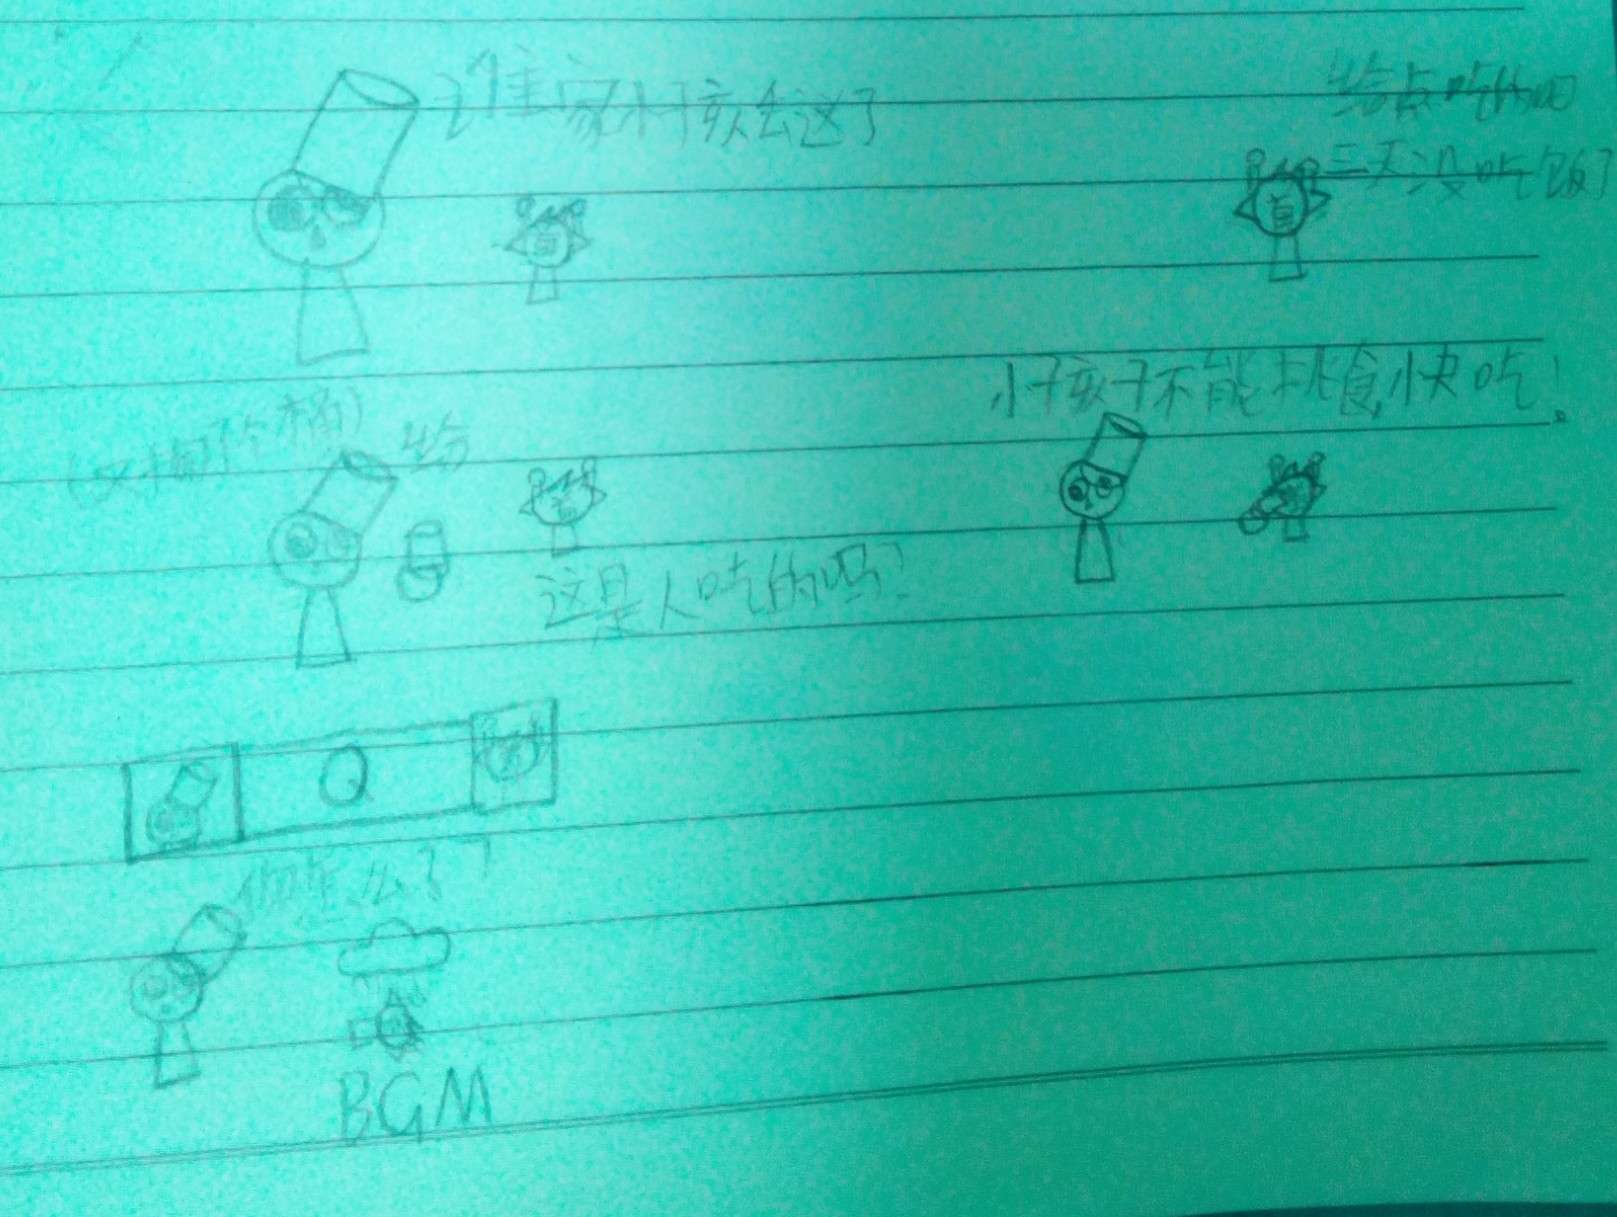 谁家小孩会这了
给点吃的吧
三天没吃饭了
(又掏了个桶)
给
这是人吃的吗?
小孩子不能挑食,快吃!
你怎么了?
BGM